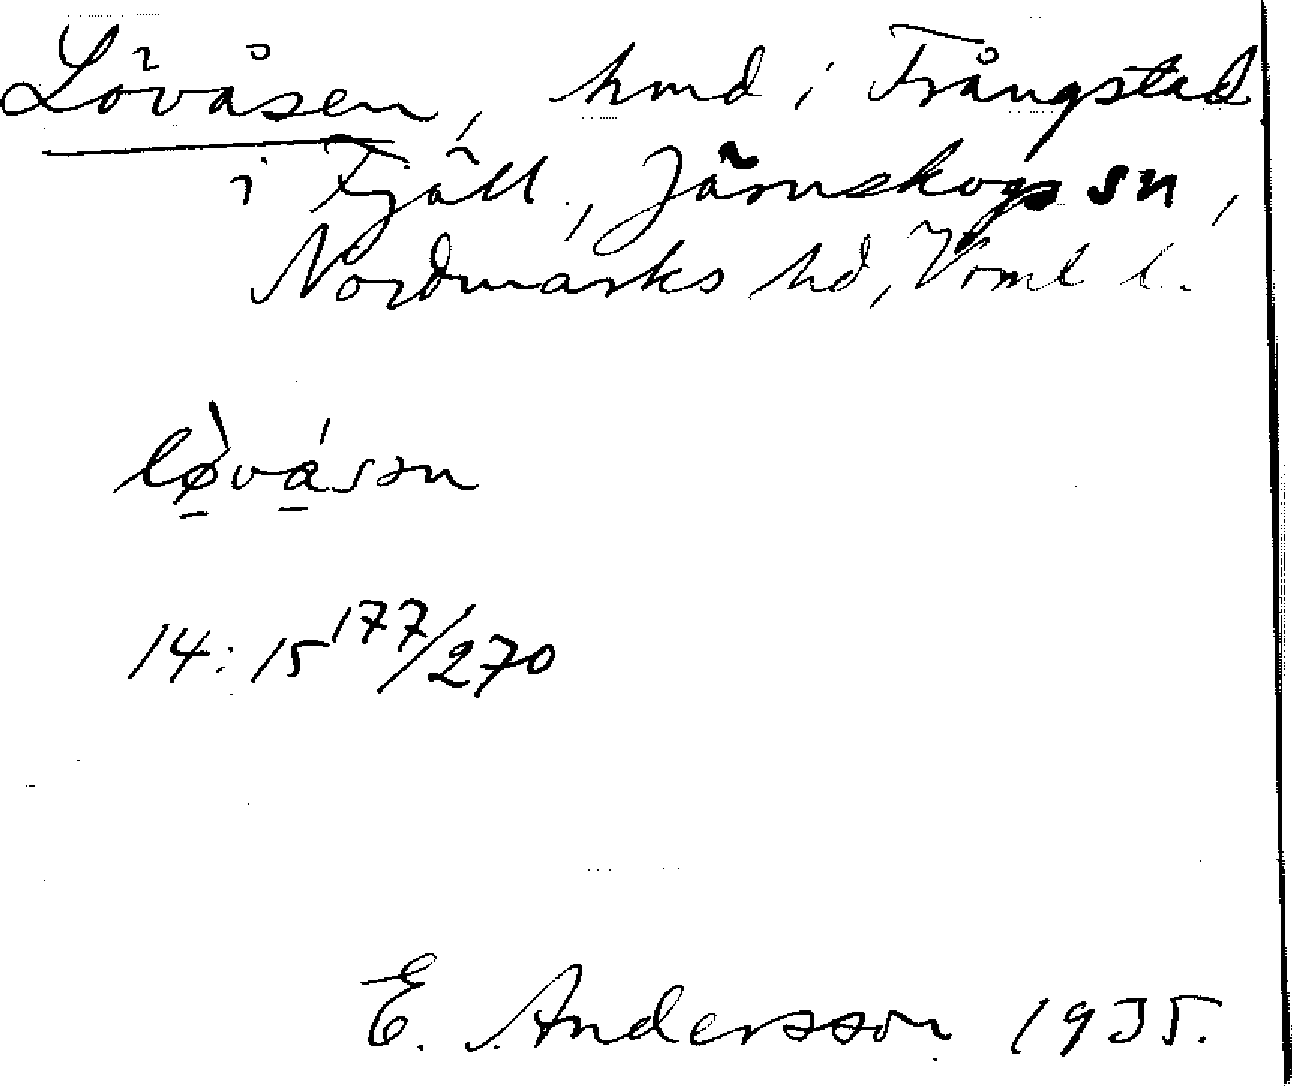 Lövåsen, hmd i Trångstad
i Fjäll, Järnskogs sn,
Nordmarks hd, Vrml l.
lø̱̀vá̱sən
14:15 177/270
E. Andersson 1935.